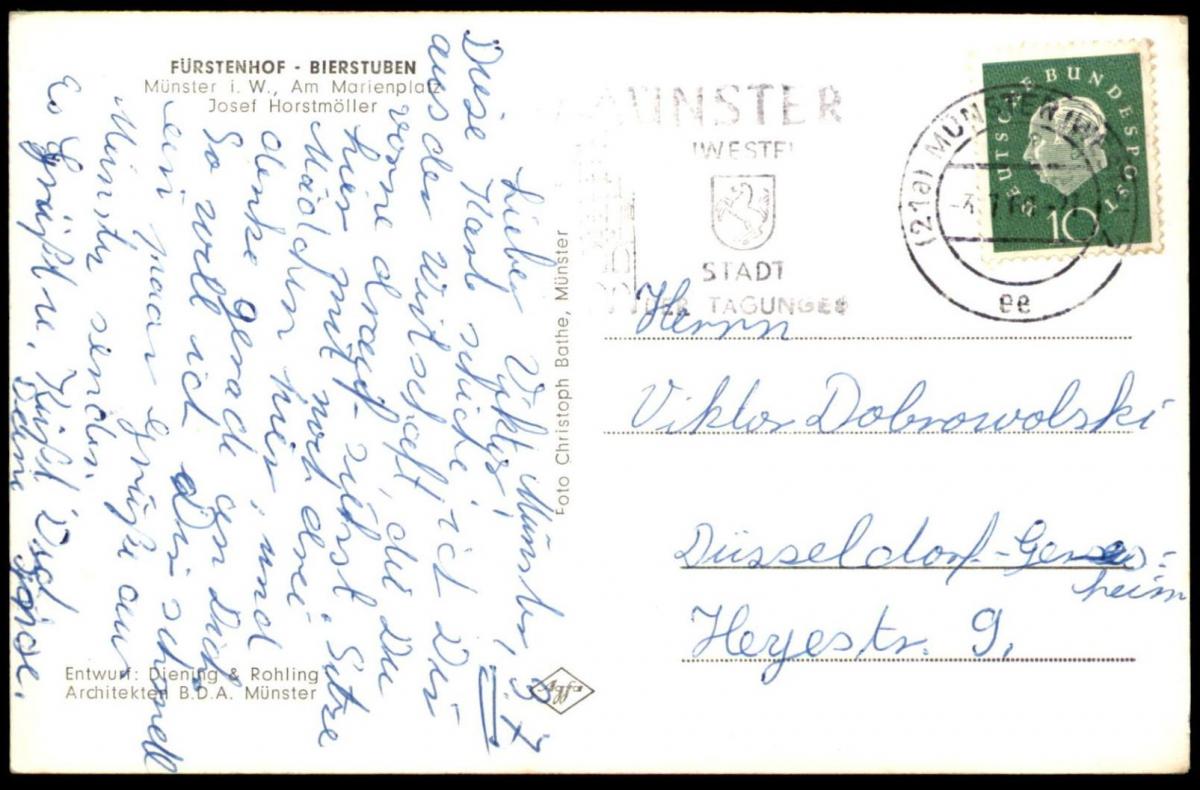 FÜRSTENHOF - BIERSTUBEN
Münster i. W., Am Marienplatz
Josef Horstmöller
Münster, 3.7.
Lieber Viktor!
Diese Karte schicke ich Dir
aus der Wirtschaft, die Du
vorne drauf siehst. Sitze
hier mit noch drei
Mädchen hier, und
denke gerade an Dich.
So will ich Dir schnell
ein paar Grüße aus
Münster senden.
Es grüßt u. küßt Dich
Deine
Entwurf: Diening & Rohling
Architekten B.D.A. Münster
Foto Christoph Bathe, Münster
Agfa
MÜNSTER
(WESTF)
STADT
DER TAGUNGEN
(21a) MÜNSTER (WESTF)
ee
DEUTSCHE BUNDESPOST
10
Herrn
Viktor Dobrowolski
Düsseldorf-Gerres-
heim
Heyestr. 9.